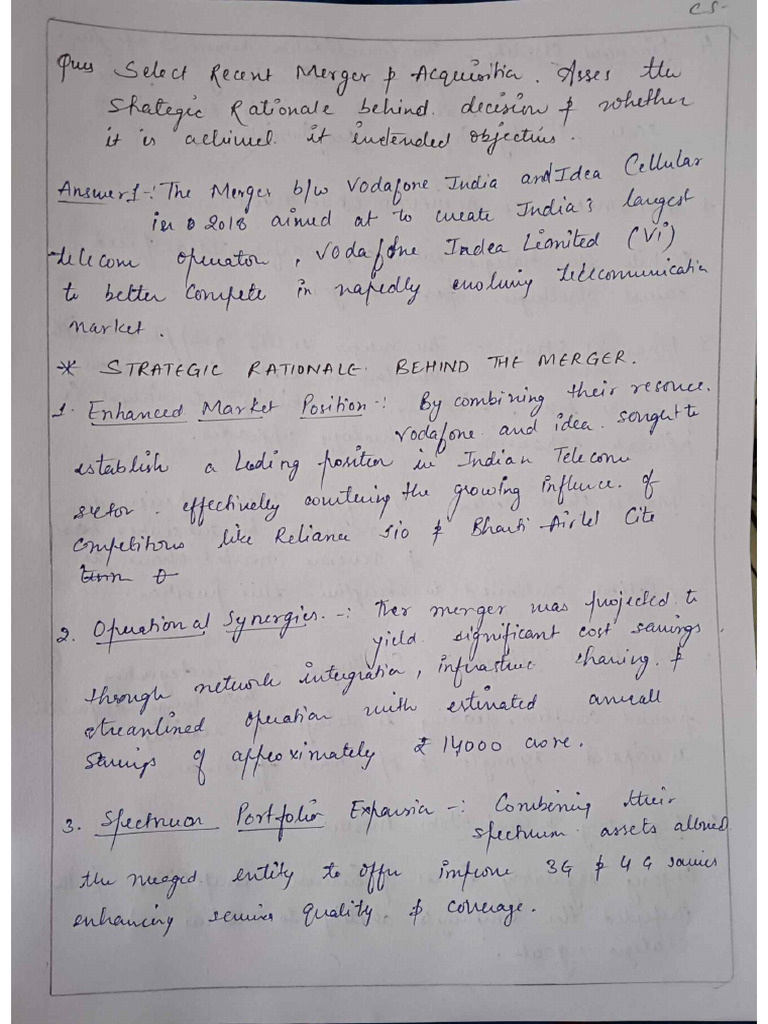 CS-
Ques Select Recent Merger & Acquisition. Asses the
Strategic Rationale behind decision & whether
it is achieved it intended objectives.
Answer 1 -: The Merger b/w Vodafone India and Idea Cellular
in 2018 aimed at to create India's largest
telecom operator, Vodafone Indea Limited (Vi)
to better compete in rapedly evolving telecommunication
market.
* STRATEGIC RATIONALE BEHIND THE MERGER.
1. Enhanced Market Position -: By combining their resource.
Vodafone and idea sought to
establish a leading position in Indian Telecom
sector. effectively countering the growing influence of
competitors like Reliance Jio & Bharti Airtel Cite
2. Operational Synergies. -: The merger was projected to
yield significant cost savings
through network integration, infrastruc sharing &
streamlined operation with estimated annuall
savings of approximately ₹ 14000 crore.
3. Spectrum Portfolio Expansion -: Combining their
spectrum assets allowed
the merged entity to offer improve 3G & 4G services
enhancing service quality & coverage.